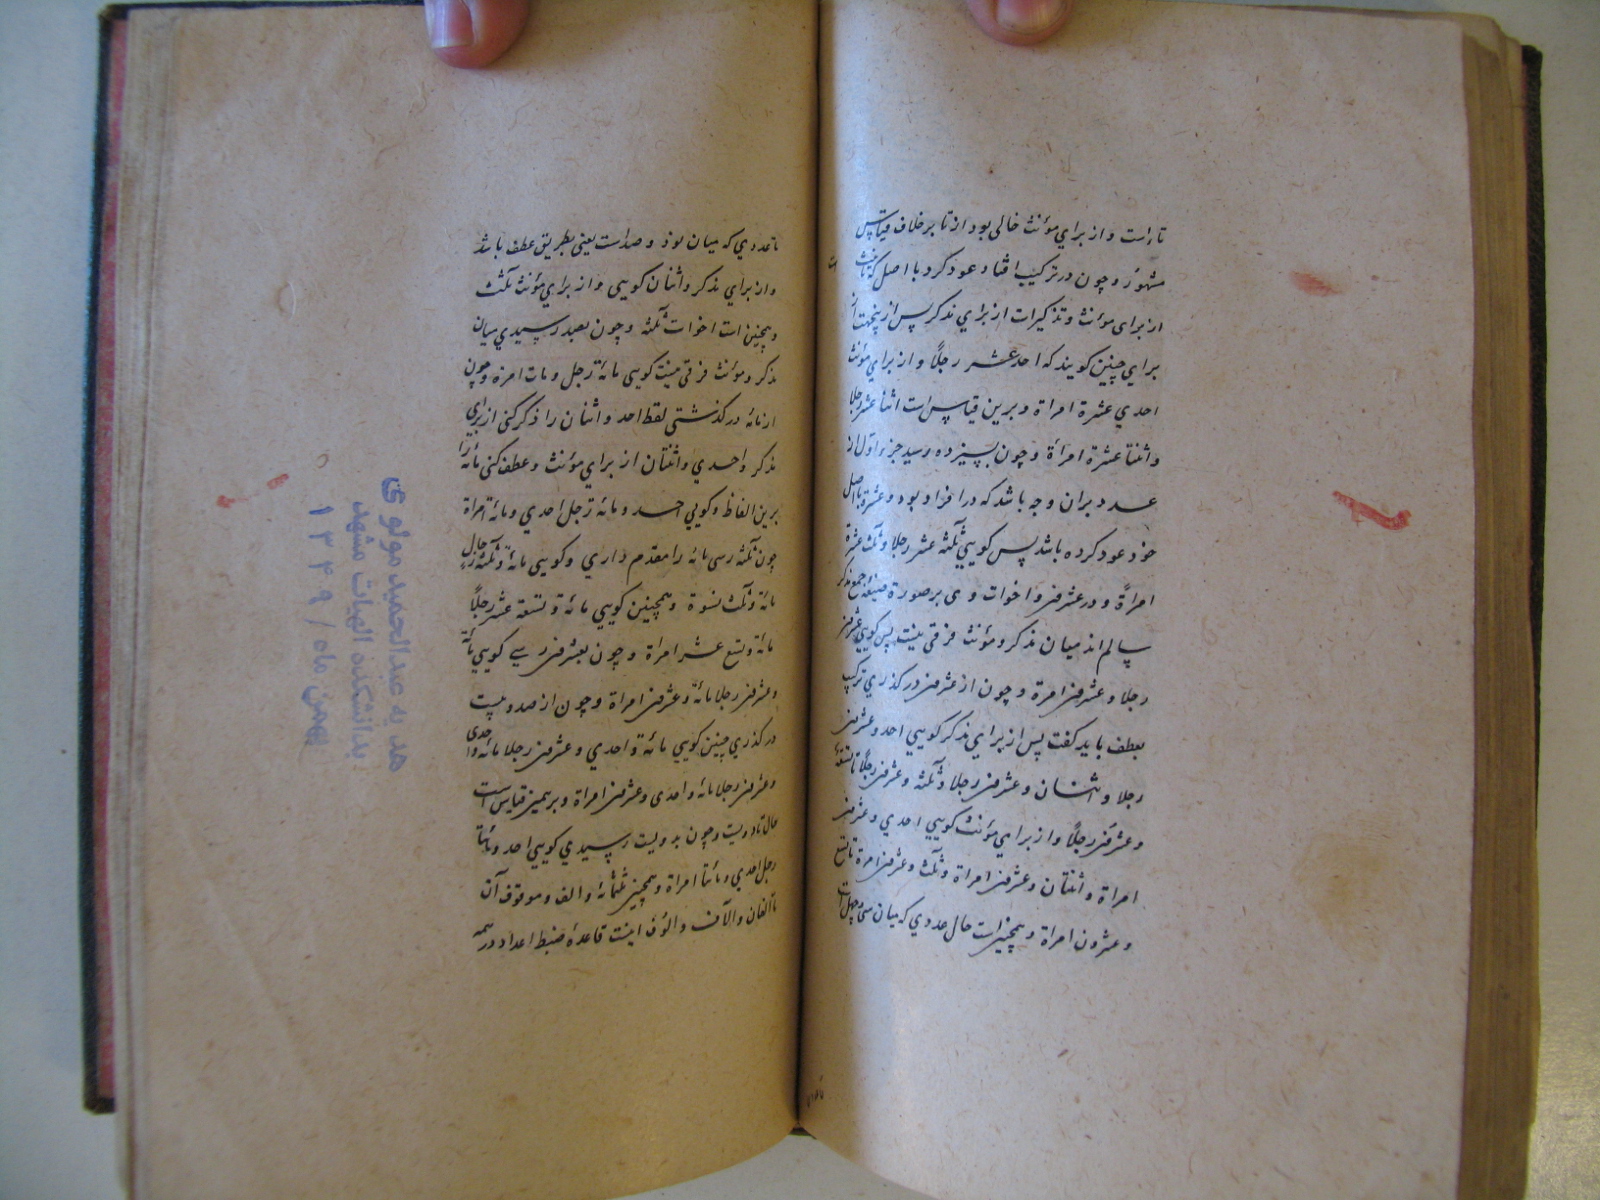 تاءاست و از براي مؤنث خالی بود از تا بر خلاف قیاس
مشهور و چون در ترکیب افتاد عود کرد با اصل که تانیث
از برای مؤنث و تذکیرات از برای مذکر پس از پنجهت از
برای چنین کویند که احد عشر رجلاً و از براي مؤنث
احدي عشرة امراة و برین قیاس است اثنا عشر رجلا
و اثنتا عشرة امرأة و چون بسیزده رسید جزء اول از
عدد بران وجه باشد که در افراد بود و عشرة با اصل
خود عود کرده باشد پس کویی ثلثة عشر رجلا و ثلث عشرة
امرأة و در عشرین و اخوات وی بر صورة صیغه جمع مذکر
سالم اند میان مذکر و مؤنث فرقی نیست پس کویی عشرین
رجلا و عشرین امرة و چون از عشرین در کذري ترکیب
بعطف باید کفت پس از براي مذکر کویی احد و عشرین
رجلا و اثنان و عشرین رجلا و ثلثة و عشرین رجلاً تا تسعة
و عشرین رجلاً و از براي مؤنث کویی احدي و عشرین
امراة و اثنتان و عشرین امراة و ثلث و عشرین امرة تا تسع
و عشرون امراة و همچنین است حال عددي که میان سی و چهل است
تا عددي که میان نود و صد است یعنی بطریق عطف باشد
و از براي مذکر و اثنان کویی و از براي مؤنث ثلث
و همچنین است اخوات ثلثة و چون بصد رسیدي میان
مذکر و مؤنث فرقی نیست کویی مائة رجل و مات امرة و چون
از مائه درکذشتی لفظ احد و اثنان را ذکر کنی از برای
مذکر و احدي و اثنتان از براي مؤنث و عطف کنی مائة را
برین الفاظ و کویی احد و مائة رجل احدي و مائة امراة
چون ثلثة رسی مائه را مقدم داري و کویی مائة و ثلثة رجال
مائة و ثلث نسوة و همچنین کویی مائة و تسعة عشر رجلاً
مائة و تسع عشر امرة و چون بعشرین رسی کویی مائة
و عشرین رجلا مائة و عشرین امراة و چون از صد و بیست
در کذري چنین کویی مائة و احدي و عشرین رجلا مائه و احدی
و عشرین رجلا مائه و احدی و عشرین امراة و بر همین قیاس است
حال تا دویست و چون بدویست رسیدي کویی احد و مائتا
رجل احدي و مائتا امراة و همچنین ثلثمائة و الف و موقوف آن
تا الفان و الآف و الوف اینست قاعده ضبط اعداد در سه
هدیه عبدالحمید مولوی
بدانشکده الهیات مشهد
بهمن ماه / ۱۳۴۹